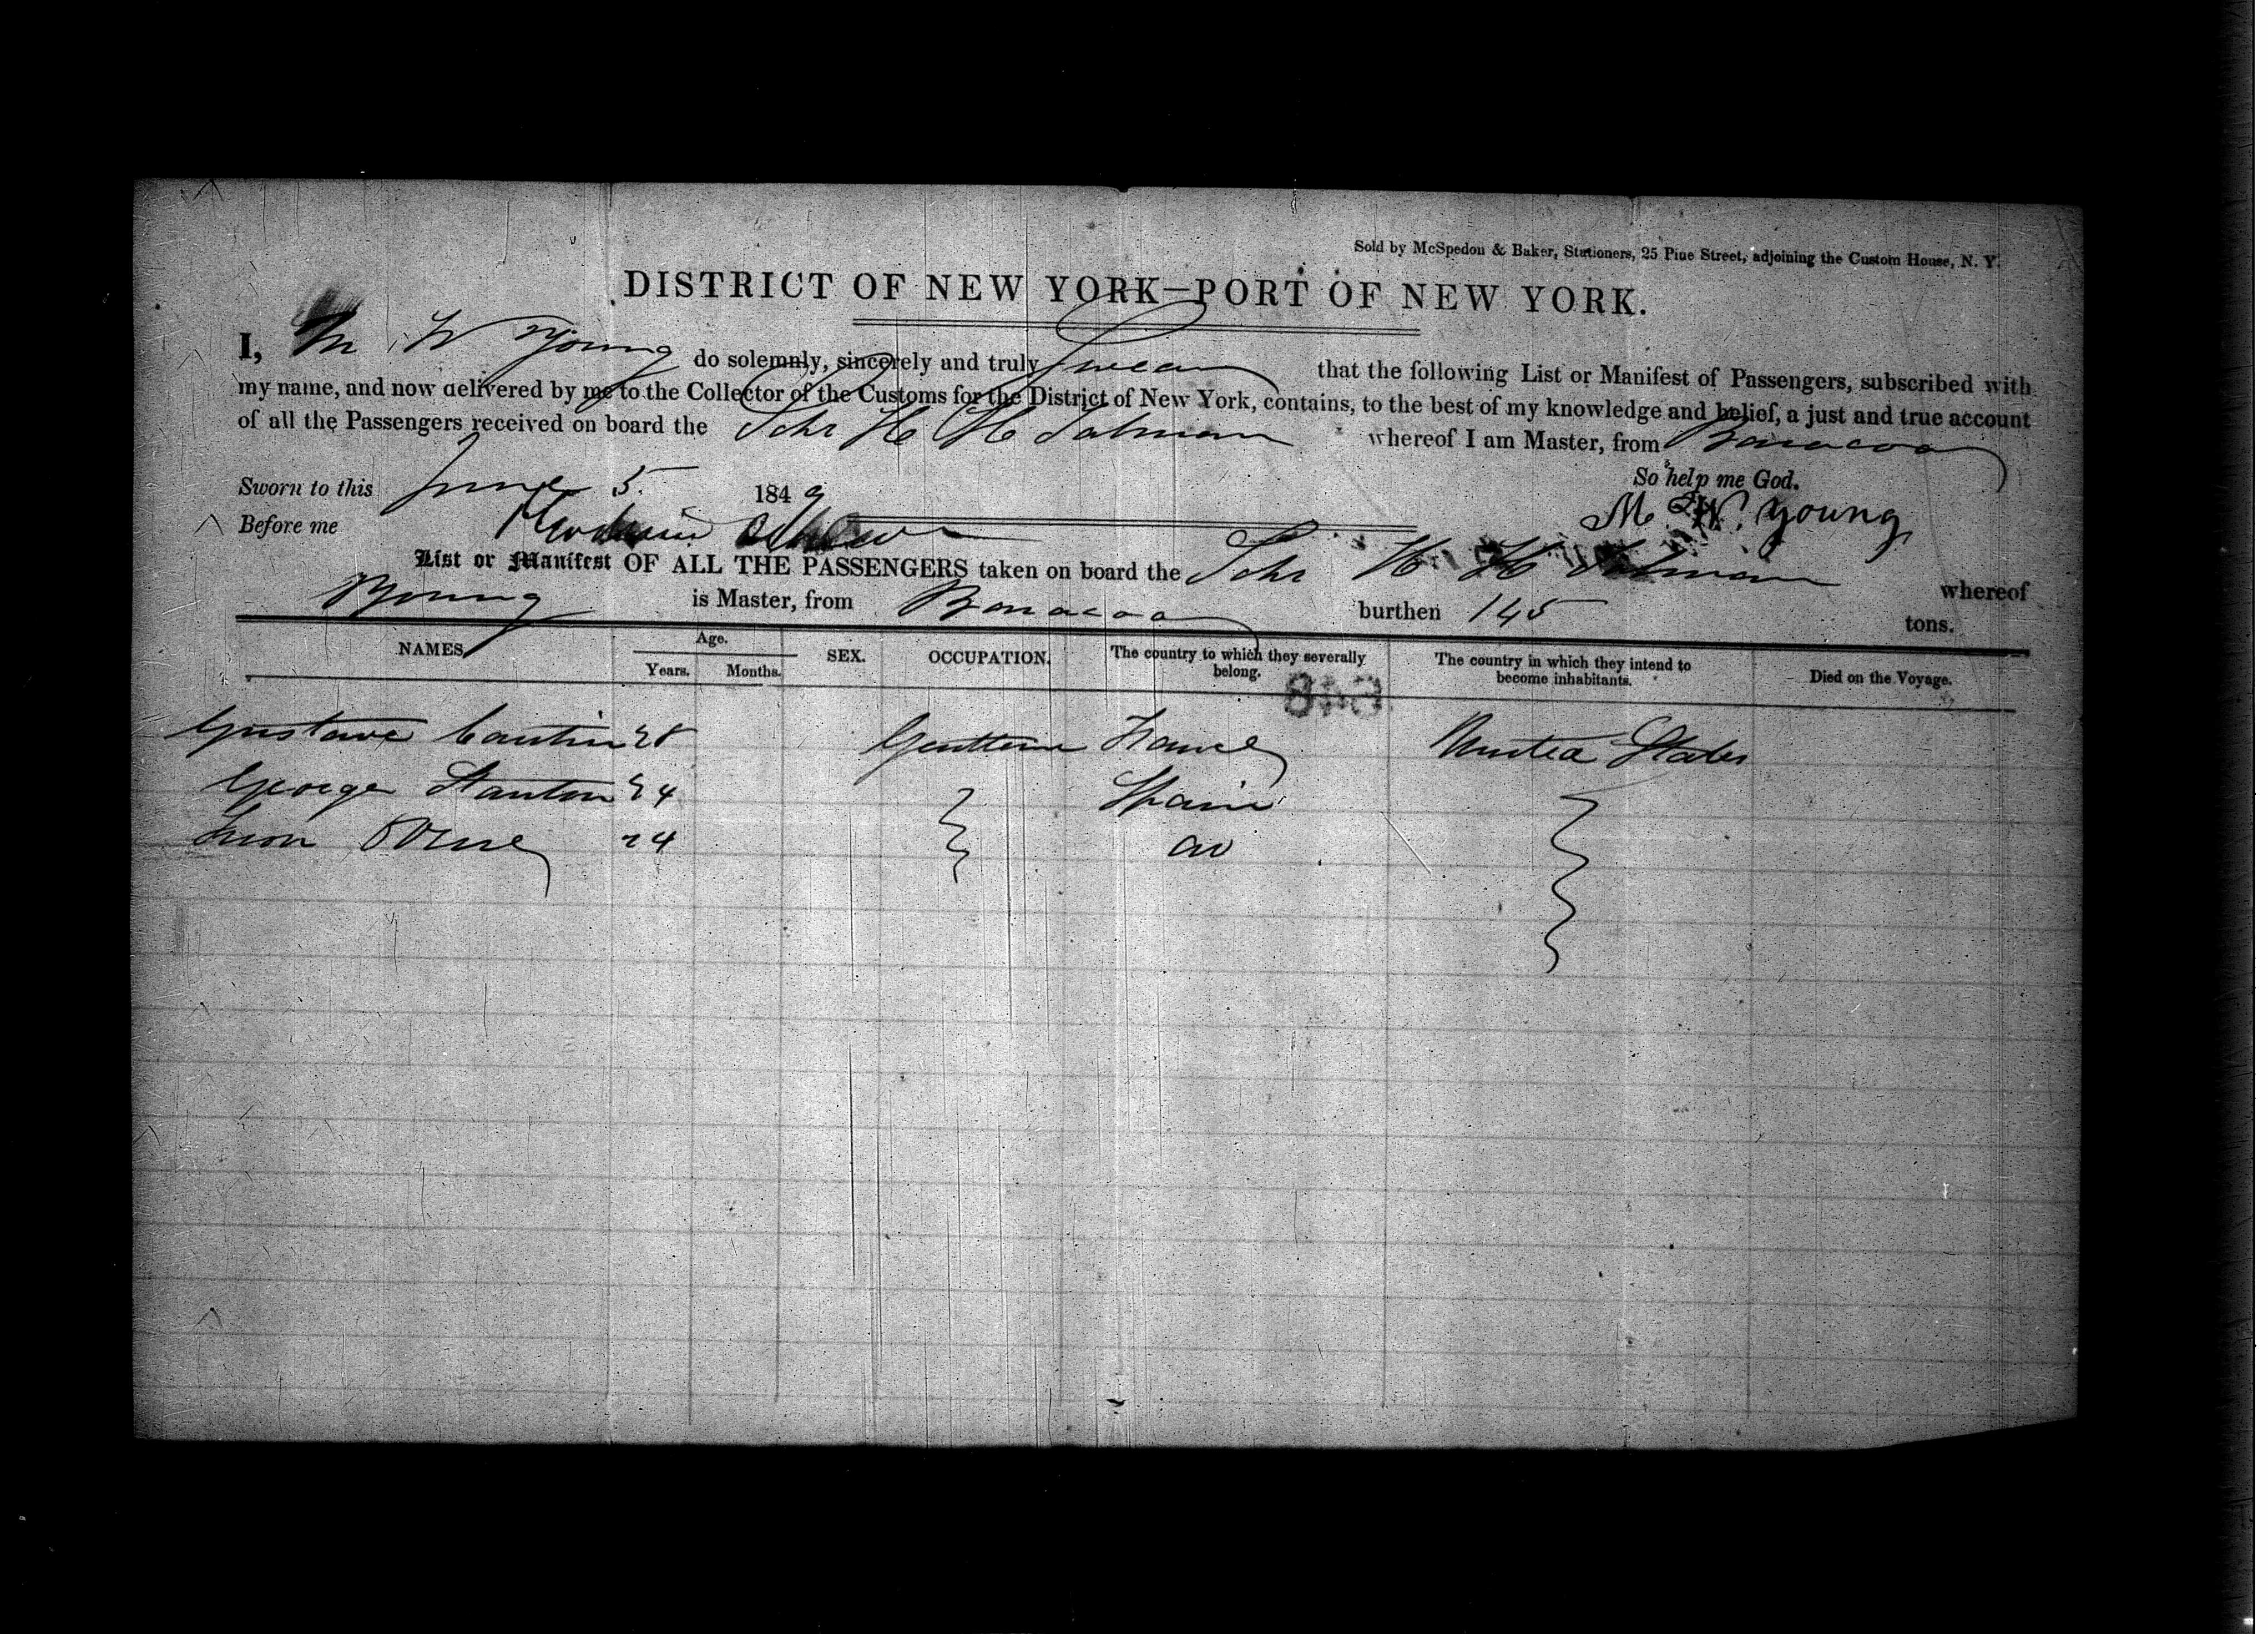 Sold by McSpedon & Baker, Stationers, 25 Pine Street, adjoining the Custom House, N. Y.
DISTRICT OF NEW YORK—PORT OF NEW YORK.
I, M W Young do solemnly, sincerely and truly Swear that the following List or Manifest of Passengers, subscribed with
my name, and now delivered by me to the Collector of the Customs for the District of New York, contains, to the best of my knowledge and belief, a just and true account
of all the Passengers received on board the Schr H H Tatman whereof I am Master, from Baracoa
So help me God.
Sworn to this June 5 1849
M. W. Young
Before me
List or Manifest OF ALL THE PASSENGERS taken on board the Schr H H Tatman whereof
Young is Master, from Baracoa burthen 145 tons.
NAMES. Age. SEX. OCCUPATION. The country to which they severally belong. The country in which they intend to become inhabitants. Died on the Voyage.
Years. Months.
Gustave 28 Gentleman France United States
George Stanton 24 Spain
24 do